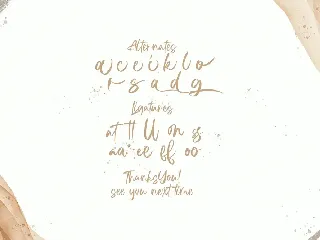 Alternates
a c e i k l o
r s a d g
Ligatures
at tt ll on
aa ee ff oo
ThanksYou!
see you next time